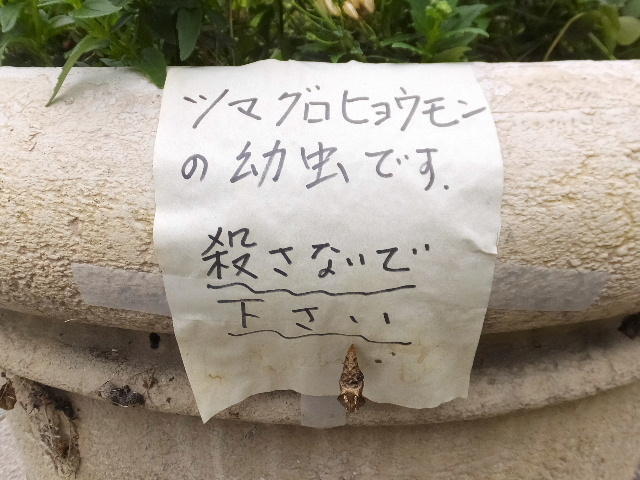 ツマグロヒョウモン
の幼虫です.
殺さないで
下さい